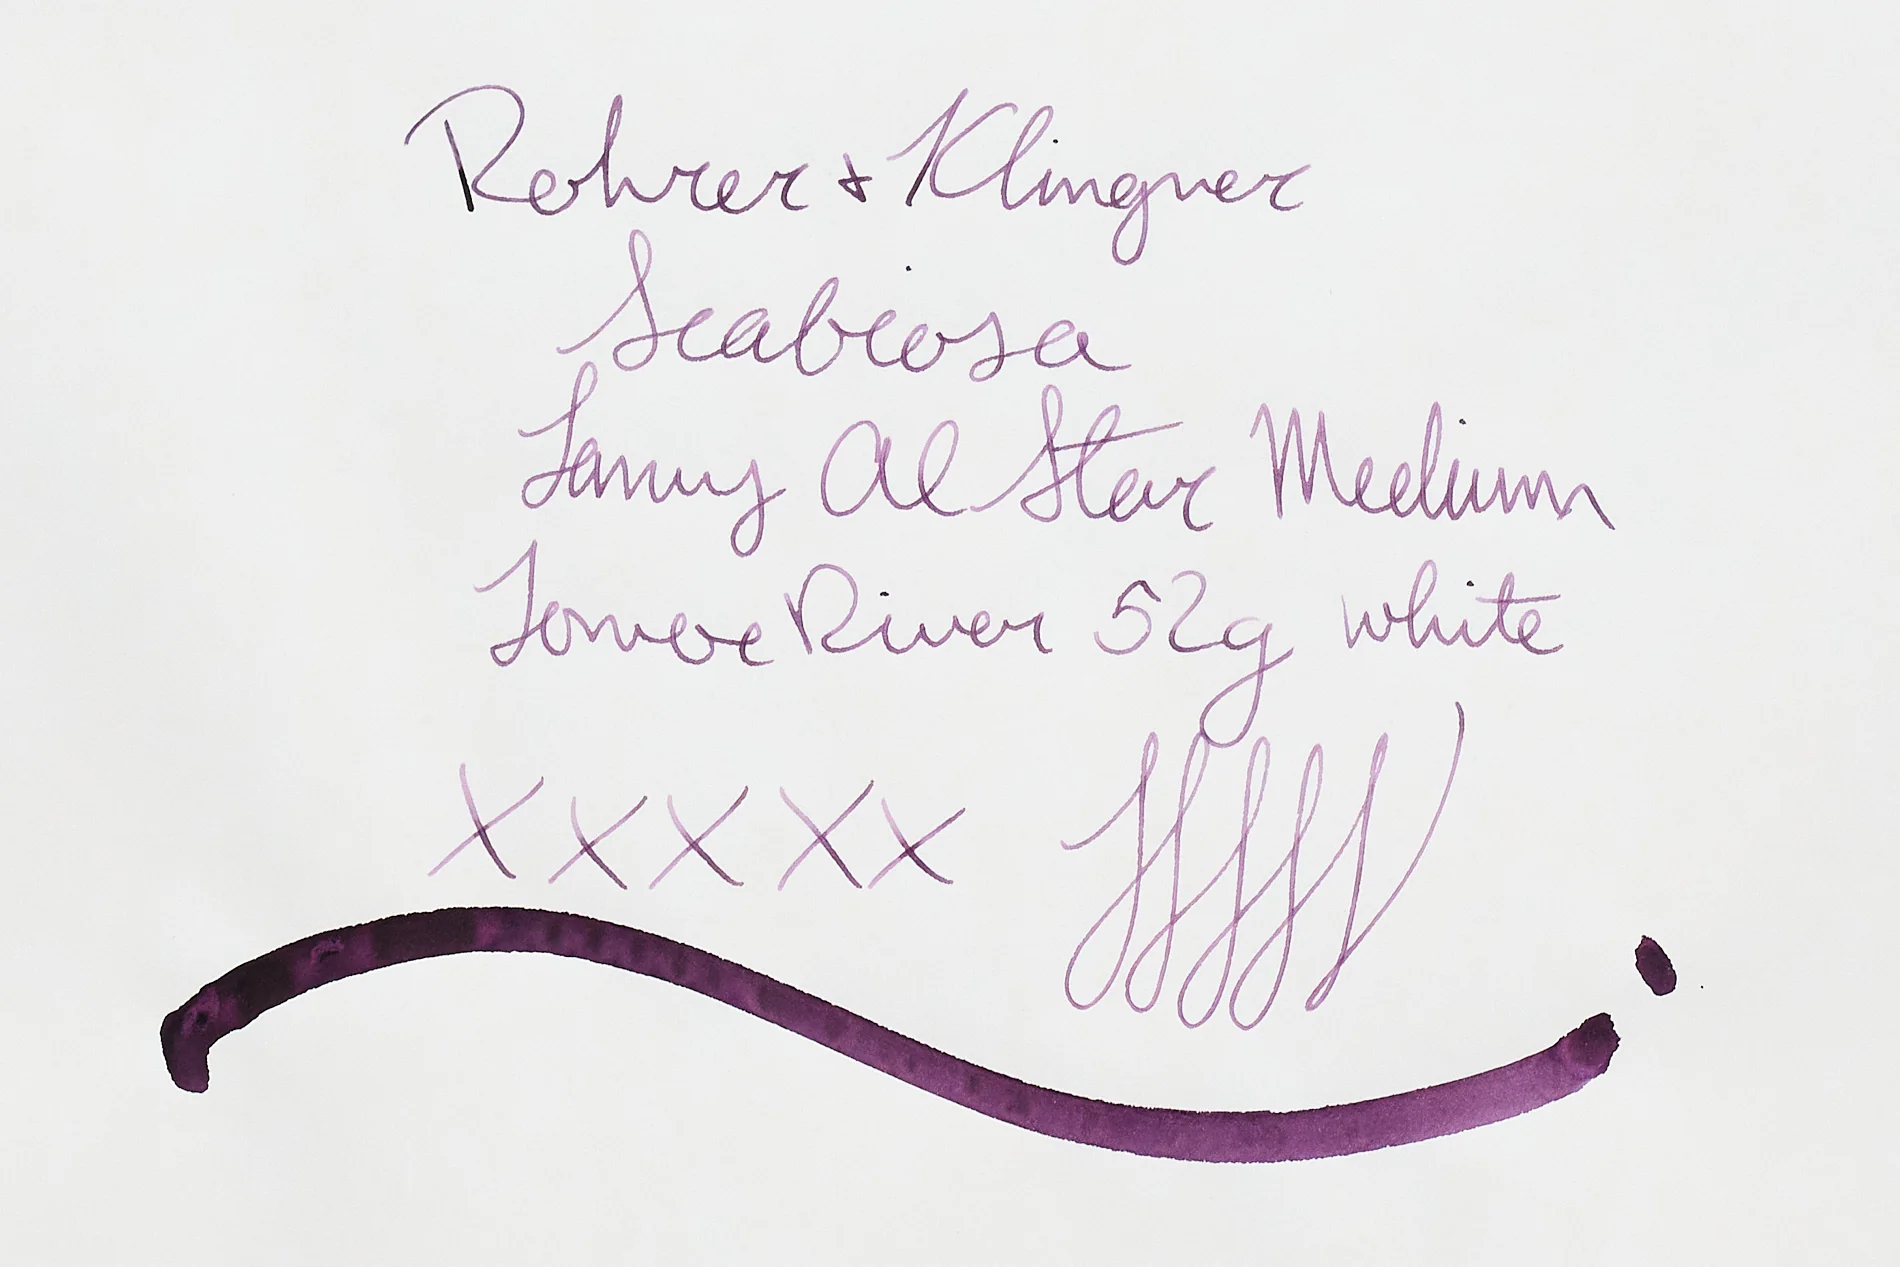 Rohrer + Klingner
Scabiosa
Lamy Al Star Medium
Tomoe River 52g white
x x x x x